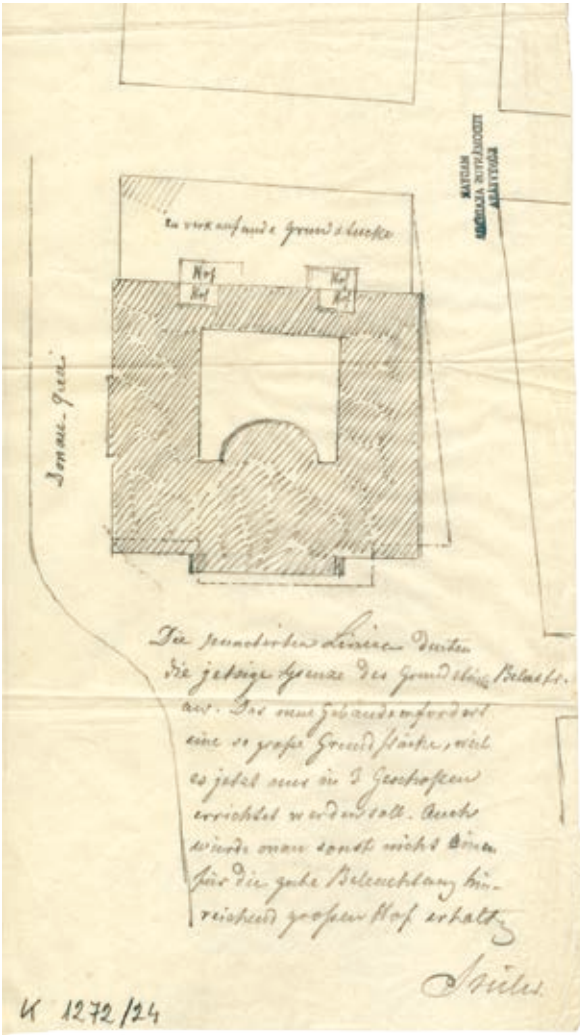 MAGYAR
TUDOMÁNYOS AKADÉMIA
KÖNYVTÁRA
zu verkaufende Grundstücke
Hof Hof
Hof Hof
Donau-Quai
Die punctirten Linien deuten
die jetzige Grenze des Grundstücks
an. Das neue Gebäude erfordert
eine so große Grundfläche, weil
es jetzt nur in 3 Geschoßen
errichtet werden soll. Auch
würde man sonst nicht einen
für die gute Beleuchtung hin-
reichend großen Hof erhalten
Stüler
K 1272/24